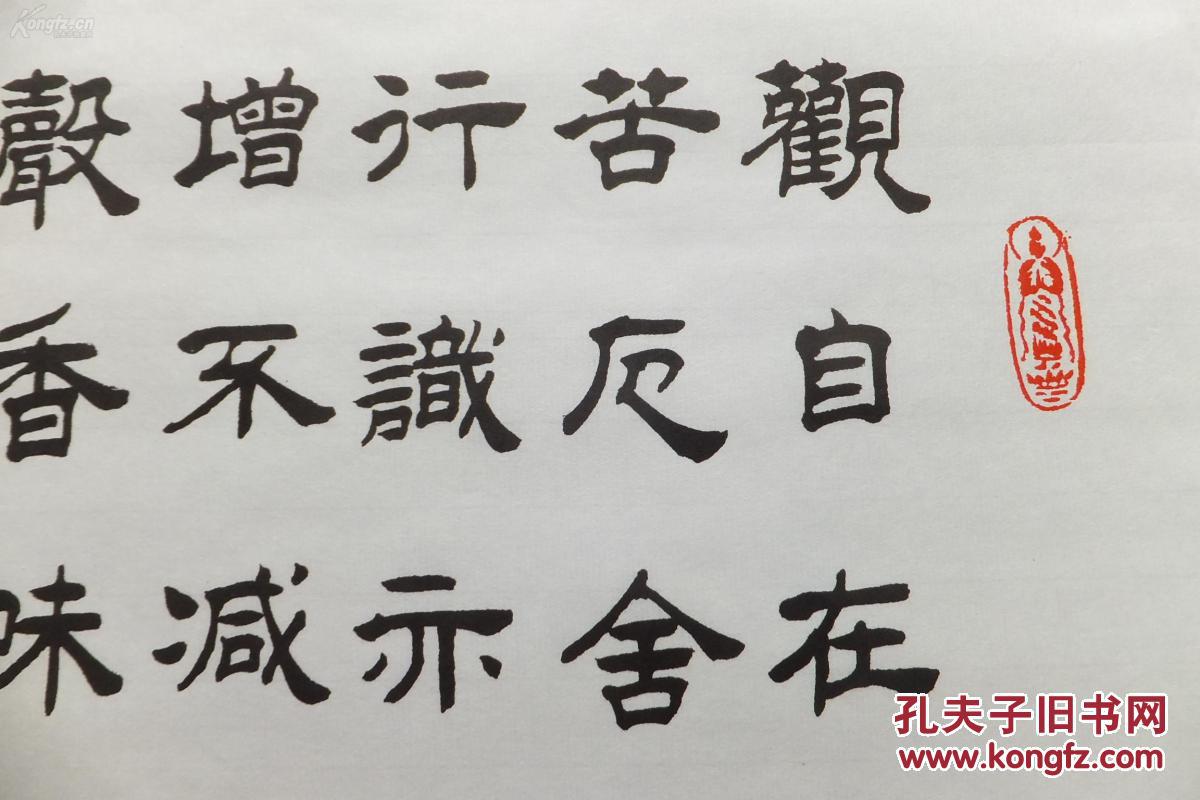 觀自在
苦厄舍
行識亦
增不減
聲香味
Kongfz.cn
孔夫子旧书网
www.kongfz.com